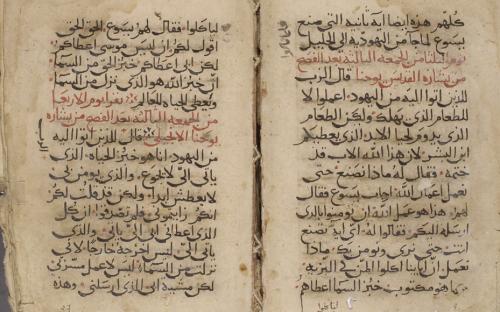 كلهم هذه ايضا ايه ثانيه التي صنع
يسوع لما جا من اليهودية الى الجليل
من الجمعه الثالثه بعد الفصح
من بشاره القديس يوحنا قال الرب
للذين اتوا اليه من اليهود اعملوا لا
للطعام الذي يهلك ولكن الطعام
الذي يدوم لحياة الابد الذي يعطيكم
ابن البشر لان هذا الله الاب قد
ختمه فقال له ماذا نصنع حتى
نعمل اعمال الله اجاب يسوع فقال
لهم هذا هو عمل الله ان تومنوا بالذي
ارسله اليكم فقالوا له اي ايه تصنع
انت حتى نرى ونومن بك ماذا
تعمل ان ابانا اكلوا المن في البريه
كما هو مكتوب خبز السما اعطاهم
لياكلوا
لياكلوا فقال لهم يسوع الحق الحق
اقول لكم ان ليس موسى اعطاكم
لكن ابي اعطاكم خبز الحق من السما
ان خبز الله هو الذي نزل من السما
ويعطي الحياه للعالم يقرا يوم الاربعا
من الجمعه الثالثه بعد الفصح من بشاره
يوحنا الانجيلي قال للذين اتوا اليه
الرب
من اليهود انا هو خبز الحياه الذي
ياتي الي لا يجوع والذي يومن بي
لا يعطش ابدا ولكن قد قلت لكم
انكم رايتموني فلم تصدقوا ان كل
الذي اعطاني ابي الي ياتي والذي
ياتي الي ليس اخرجه خارجا لاني
نزلت من السما ليس لاعمل مسرتي
لكن مشية ابي الذي ارسلني وهذه